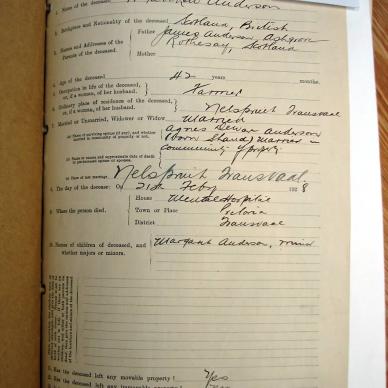 1. Name of the deceased Anderson
2. Birthplace and Nationality of the deceased Scotland, British
3. Names and Addresses of the Parents of the deceased
Father James Anderson, Ashgrove
Mother Rothesay, Scotland
4. Age of the deceased 42 years months.
5. Occupation in life of the deceased, or, if a woman, of her husband. Farmer
6. Ordinary place of residence of the deceased, or, if a woman, of her husband. Nelspruit Transvaal
7. Married or Unmarried, Widower or Widow Married
(a) Name of surviving spouse (if any), and whether married in community of property or not. Agnes Dewar Anderson
(born Shand) married in
community of property
(b) Name or names and approximate date of death of predeceased spouse or spouses
(c) Place of last marriage Nelspruit Transvaal.
8. The day of the decease: On 21st Feby 1928
9. Where the person died.
House Mental Hospital
Town or Place Pretoria
District Transvaal
10. Names of children of deceased, and whether majors or minors.
Margaret Anderson, minor
11. Has the deceased left any movable property? Yes
12. Has the deceased left any immovable property?